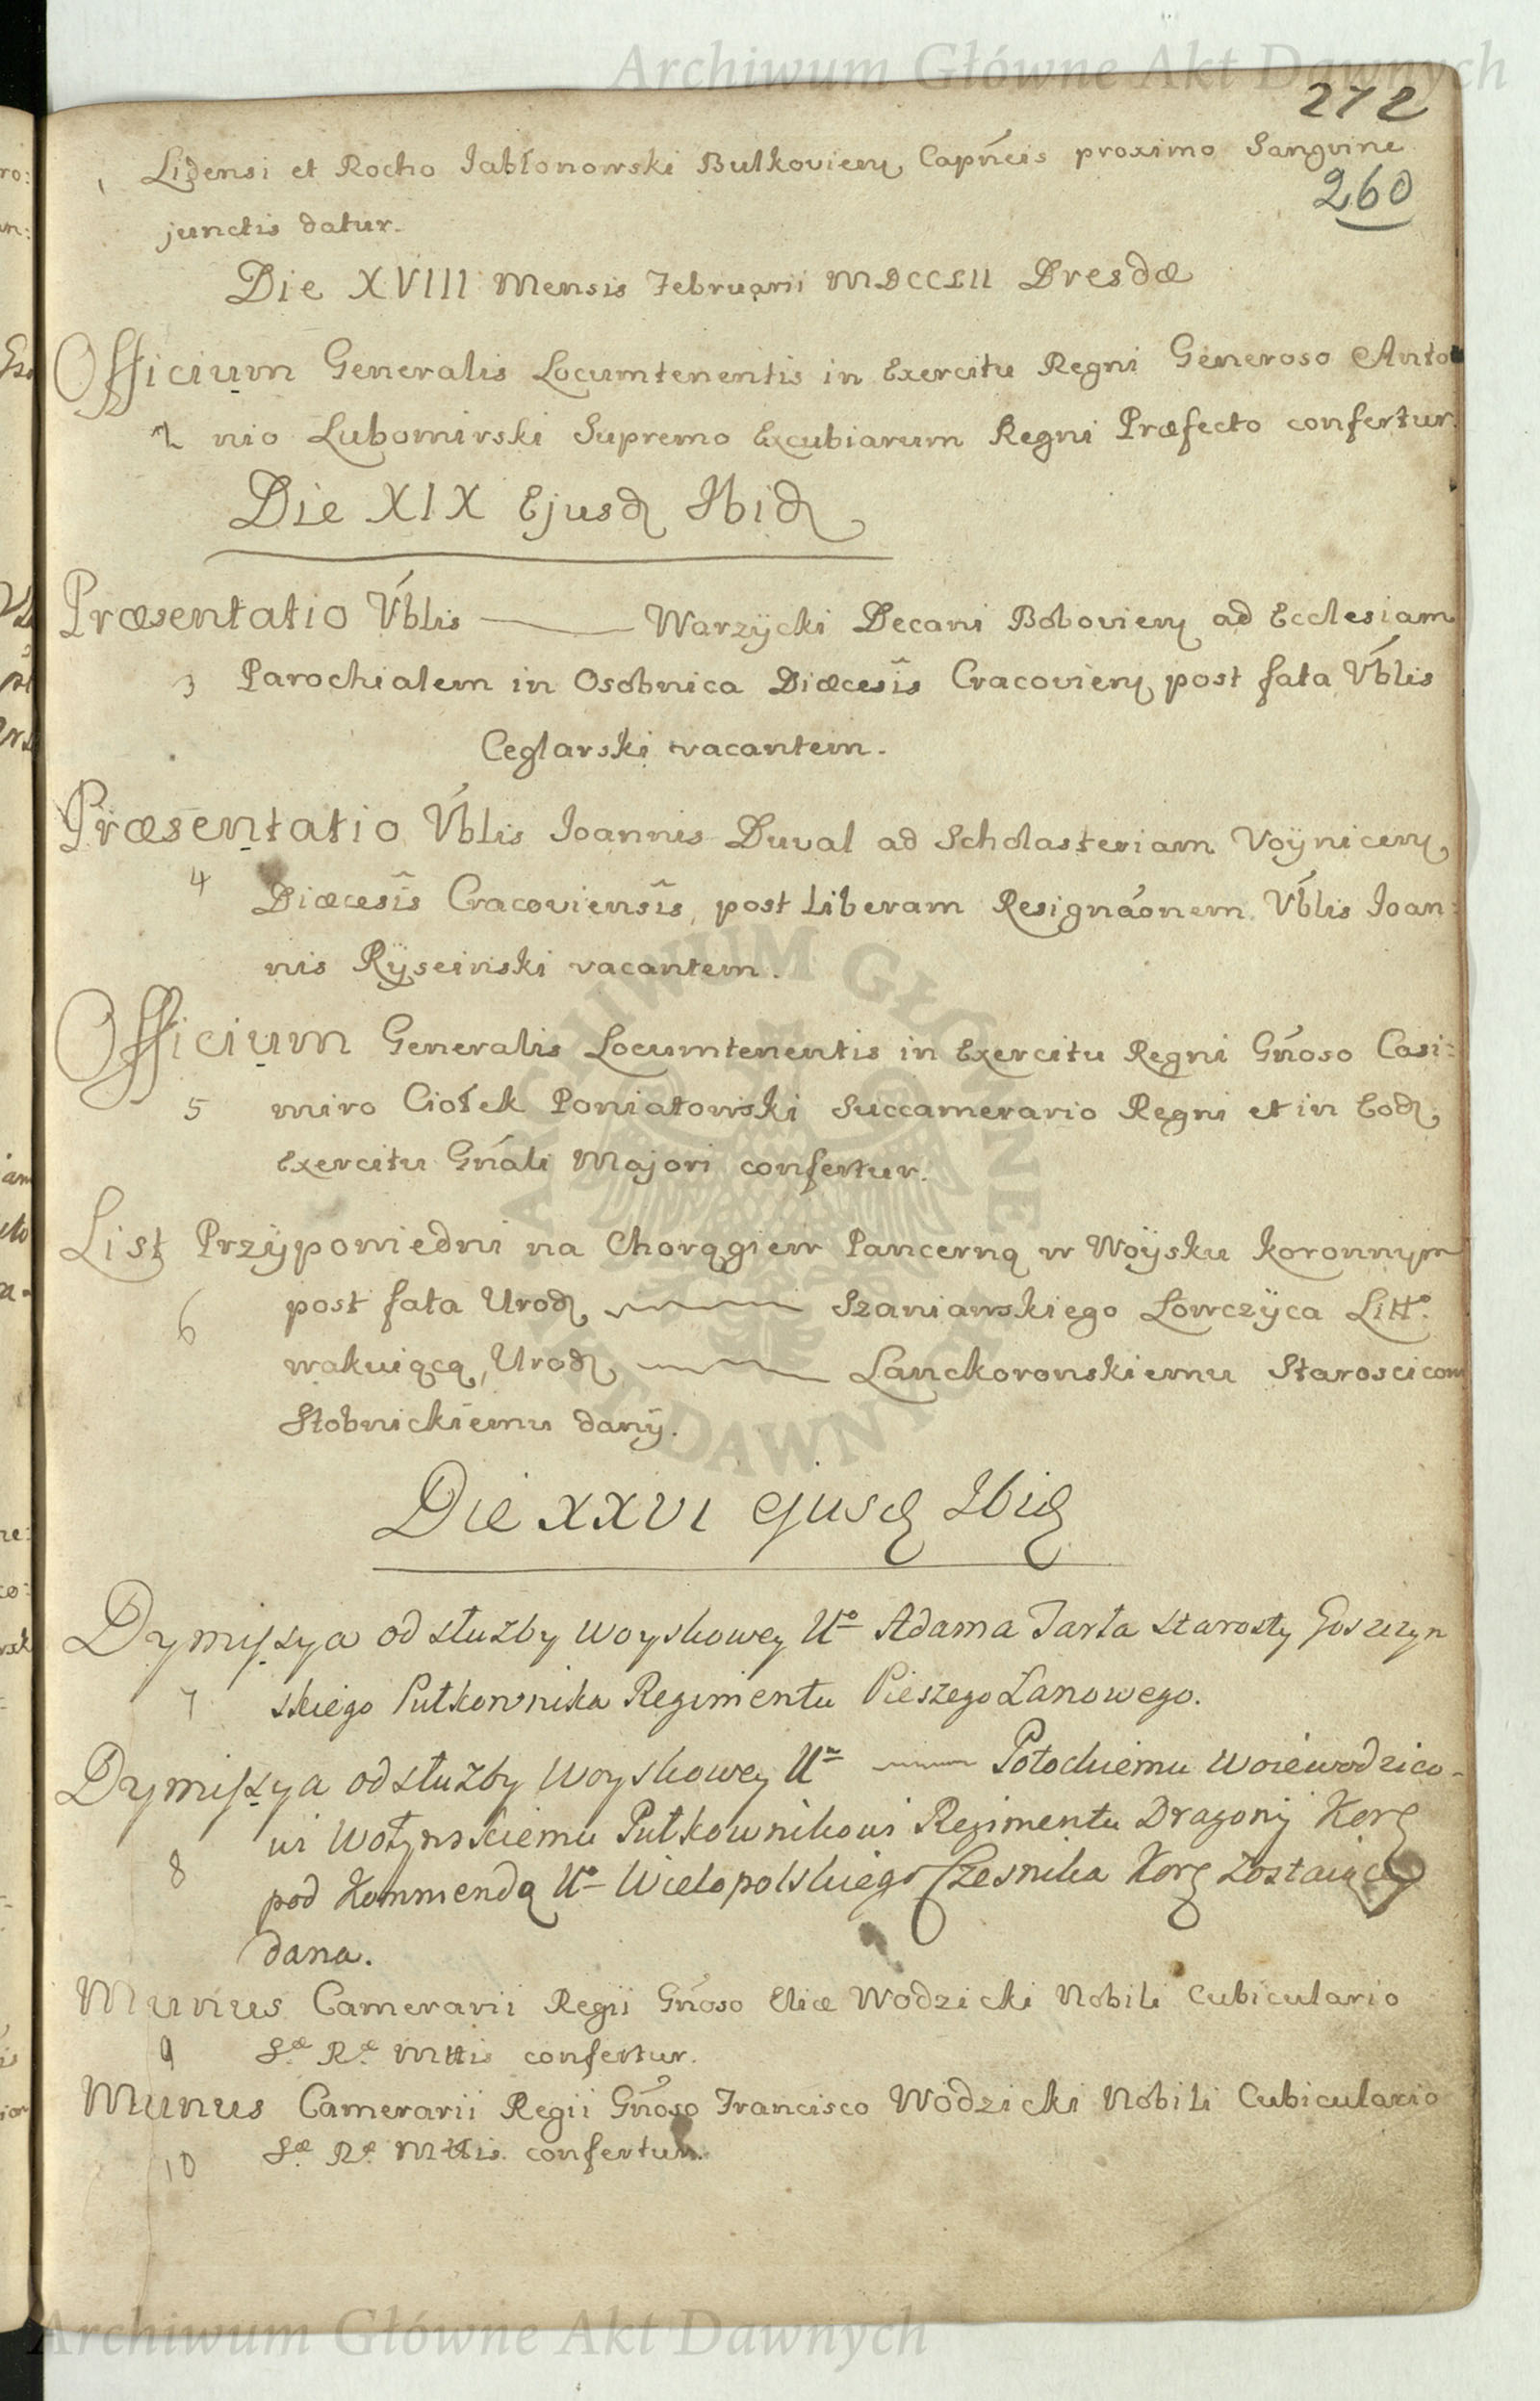 Archiwum Główne Akt Dawnych
272
1 Lidensi et Rocho Jabłonowski Bulkovien Capńeis proximo Sanguine
260
junctis datur.
Die XVIII Mensis Februarii MDCCLII Dresdæ
Officium Generalis Locumtenentis in Exercitu Regni Generoso Anto
2 nio Lubomirski Supremo Excubiarum Regni Præfecto confertur.
Die XIX Ejusd Ibid
Præsentatio Vblis Warzÿcki Decani Bobovien ad Ecclesiam
3 Parochialem in Osobnica Diæcesis Cracovien post fata Vblis
Ceglarski vacantem.
Præsentatio Vblis Joannis Duval ad Scholasteriam Voÿnicen
4 Diæcesis Cracoviensis, post Liberam Resignáonem Vblis Joan:
nis Rÿseinski vacantem.
Officium Generalis Locumtenentis in Exercitu Regni Gñoso Casi:
5 miro Ciołek Poniatowski Succamerario Regni et in Eod
Exercitu Gnáli Majori confertur.
List Przÿpowiedni na Chorągiew Pancerną w Woÿsku Koronnÿm
6 post fata Urod Szaniawskiego Łowczÿca Litto.
wakuiącą, Urod Lanckoronskiemu Staroscicowi
Stobnickiemu danÿ.
Die XXVI ejusd Ibid
Dymissya od służby Woyskowey Uo Adama Tarła Starosty Goszczyn
7 skiego Pułkownika Regimentu Pieszego Łanowego.
Dymissya od służby Woyskowey Um Potockiemu Woiewodzico-
8 wi Wołynskiemu Pułkownikowi Regimentu Dragonij Kor
pod Kommendą Uo Wielopolskiego Czesnika Kor zostaiącego
dana.
Munus Camerarii Regii Gñoso Eliæ Wodzicki Nobili Cubiculario
9 Sæ Ræ Mttis confertur.
Munus Camerarii Regii Gñoso Francisco Wodzicki Nobili Cubiculario
10 Sæ Ræ Mttis confertur.
ARCHIWUM GŁÓWNE AKT DAWNYCH
Archiwum Główne Akt Dawnych